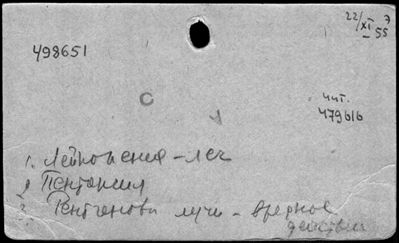 22/XI 55
498651
С
чит.
479616
1. Лейкопения - леч
2 Пентоксил
3 Рентгеновы лучи - вредное
действие